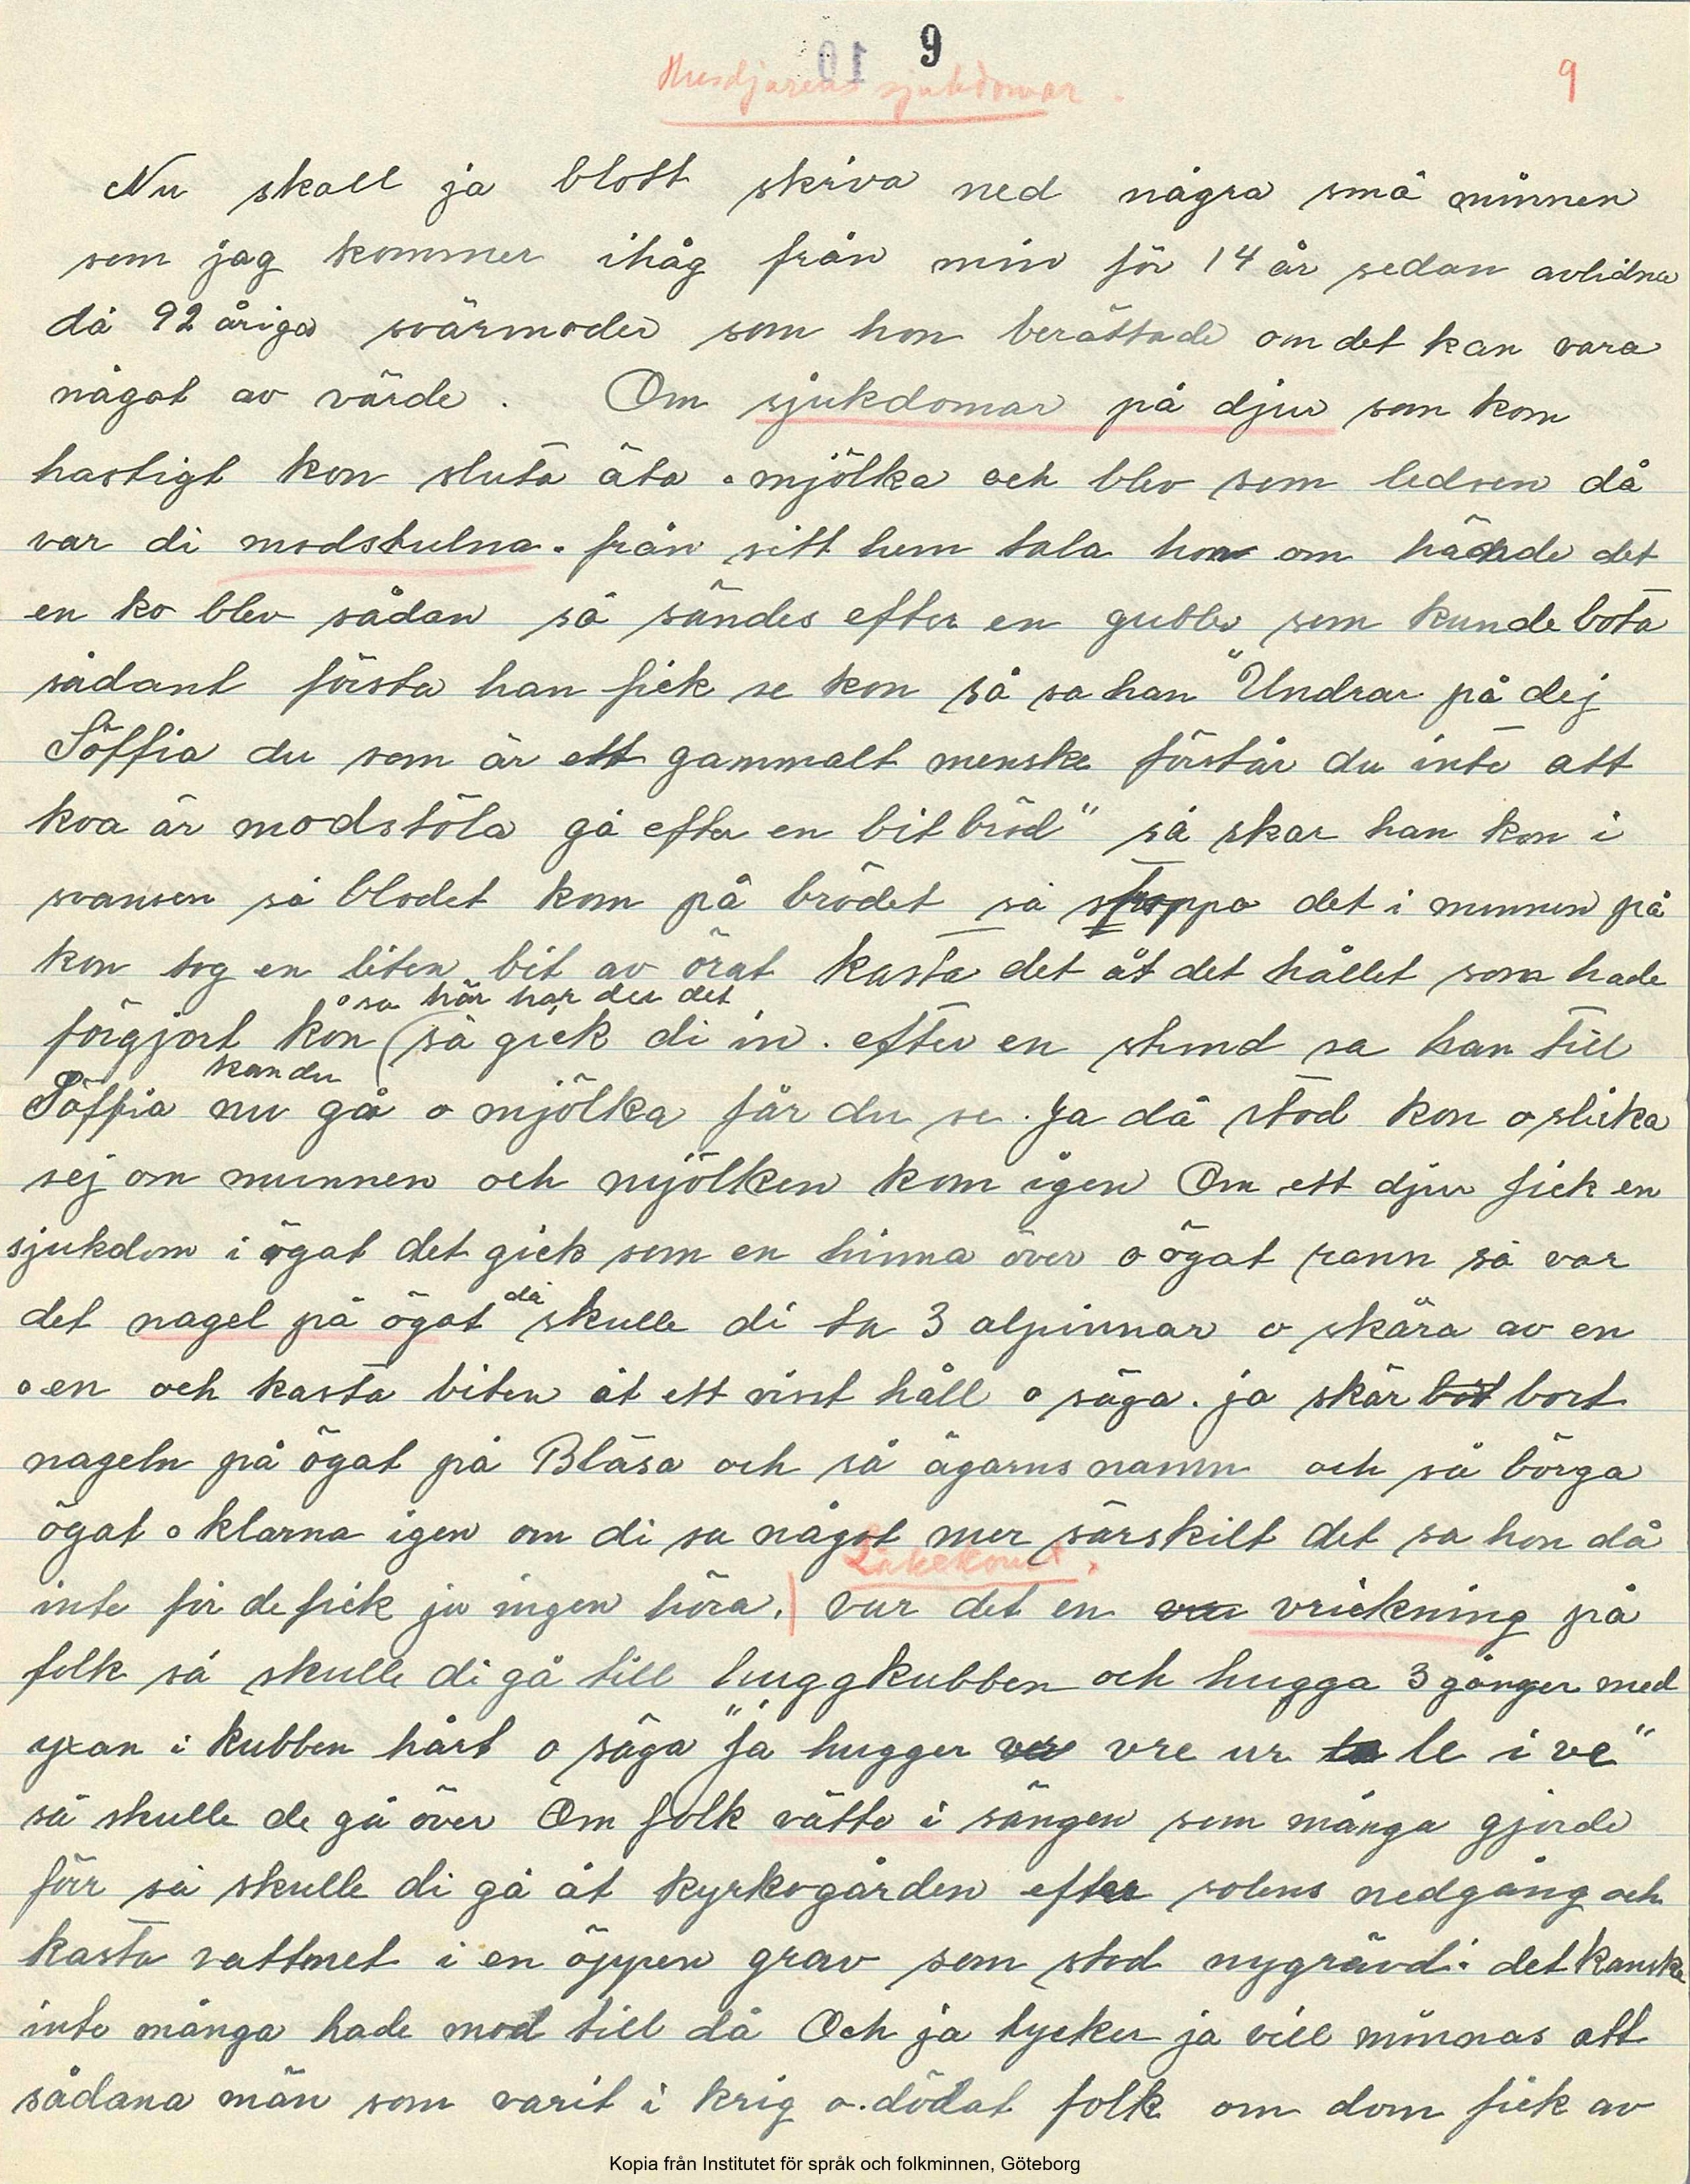 9
Husdjurens sjukdomar.
9
Nu skall ja blott skriva ned några små minnen
som jag kommer ihåg från min för 14 år sedan avlidna
då 92 åriga svärmoder som hon berättade om det kan vara
något av värde. Om sjukdomar på djur som kom
hastigt kon sluta äta o mjölka och blev som ledsen då
var di modstulna. från sitt hem tala hon om hände det
en ko blev sådan så sändes efter en gubbe som kunde bota
sådant första han fick se kon så sa han "Undrar på dej
Söffia du som är ett gammalt menske förstår du inte att
koa är modstöla gå efter en bit bröd" så skar han kon i
svansen så blodet kom på brödet så stoppa det i munnen på
kon tog en liten bit av örat kasta det åt det hållet som hade
o sa här har du det
förgjort kon (så gick di in. efter en stund sa han till
kan du
Söffia nu gå o mjölka får du se. Ja då stod kon o slicka
sej om munnen och mjölken kom igen Om ett djur fick en
sjukdom i ögat det gick som en hinna över o ögat rann så var
då
det nagel på ögat skulle di ta 3 alpinnar o skära av en
o en och kasta biten åt ett vist håll o säga. ja skär bot bort
nageln på ögat på Bläsa och så ägarns namn och så börga
ögat o klarna igen om di sa något mer särskilt det sa hon då
Läkekonst.
inte för de fick ju ingen höra. var det en vrickning på
folk så skulle di gå till huggkubben och hugga 3 gånger med
yxan i kubben hårt o säga "Ja hugger vre ur le i ve"
så skulle de gå över Om folk vätte i sängen som många gjorde
förr så skulle di gå åt kyrkogården efter solens nedgång och
kasta vattnet i en öppen grav som stod nygrävd. det kanske
inte många hade mod till då Och ja tycker ja vill minnas att
sådana män som varit i krig o. dödat folk om dom fick av
Kopia från Institutet för språk och folkminnen, Göteborg